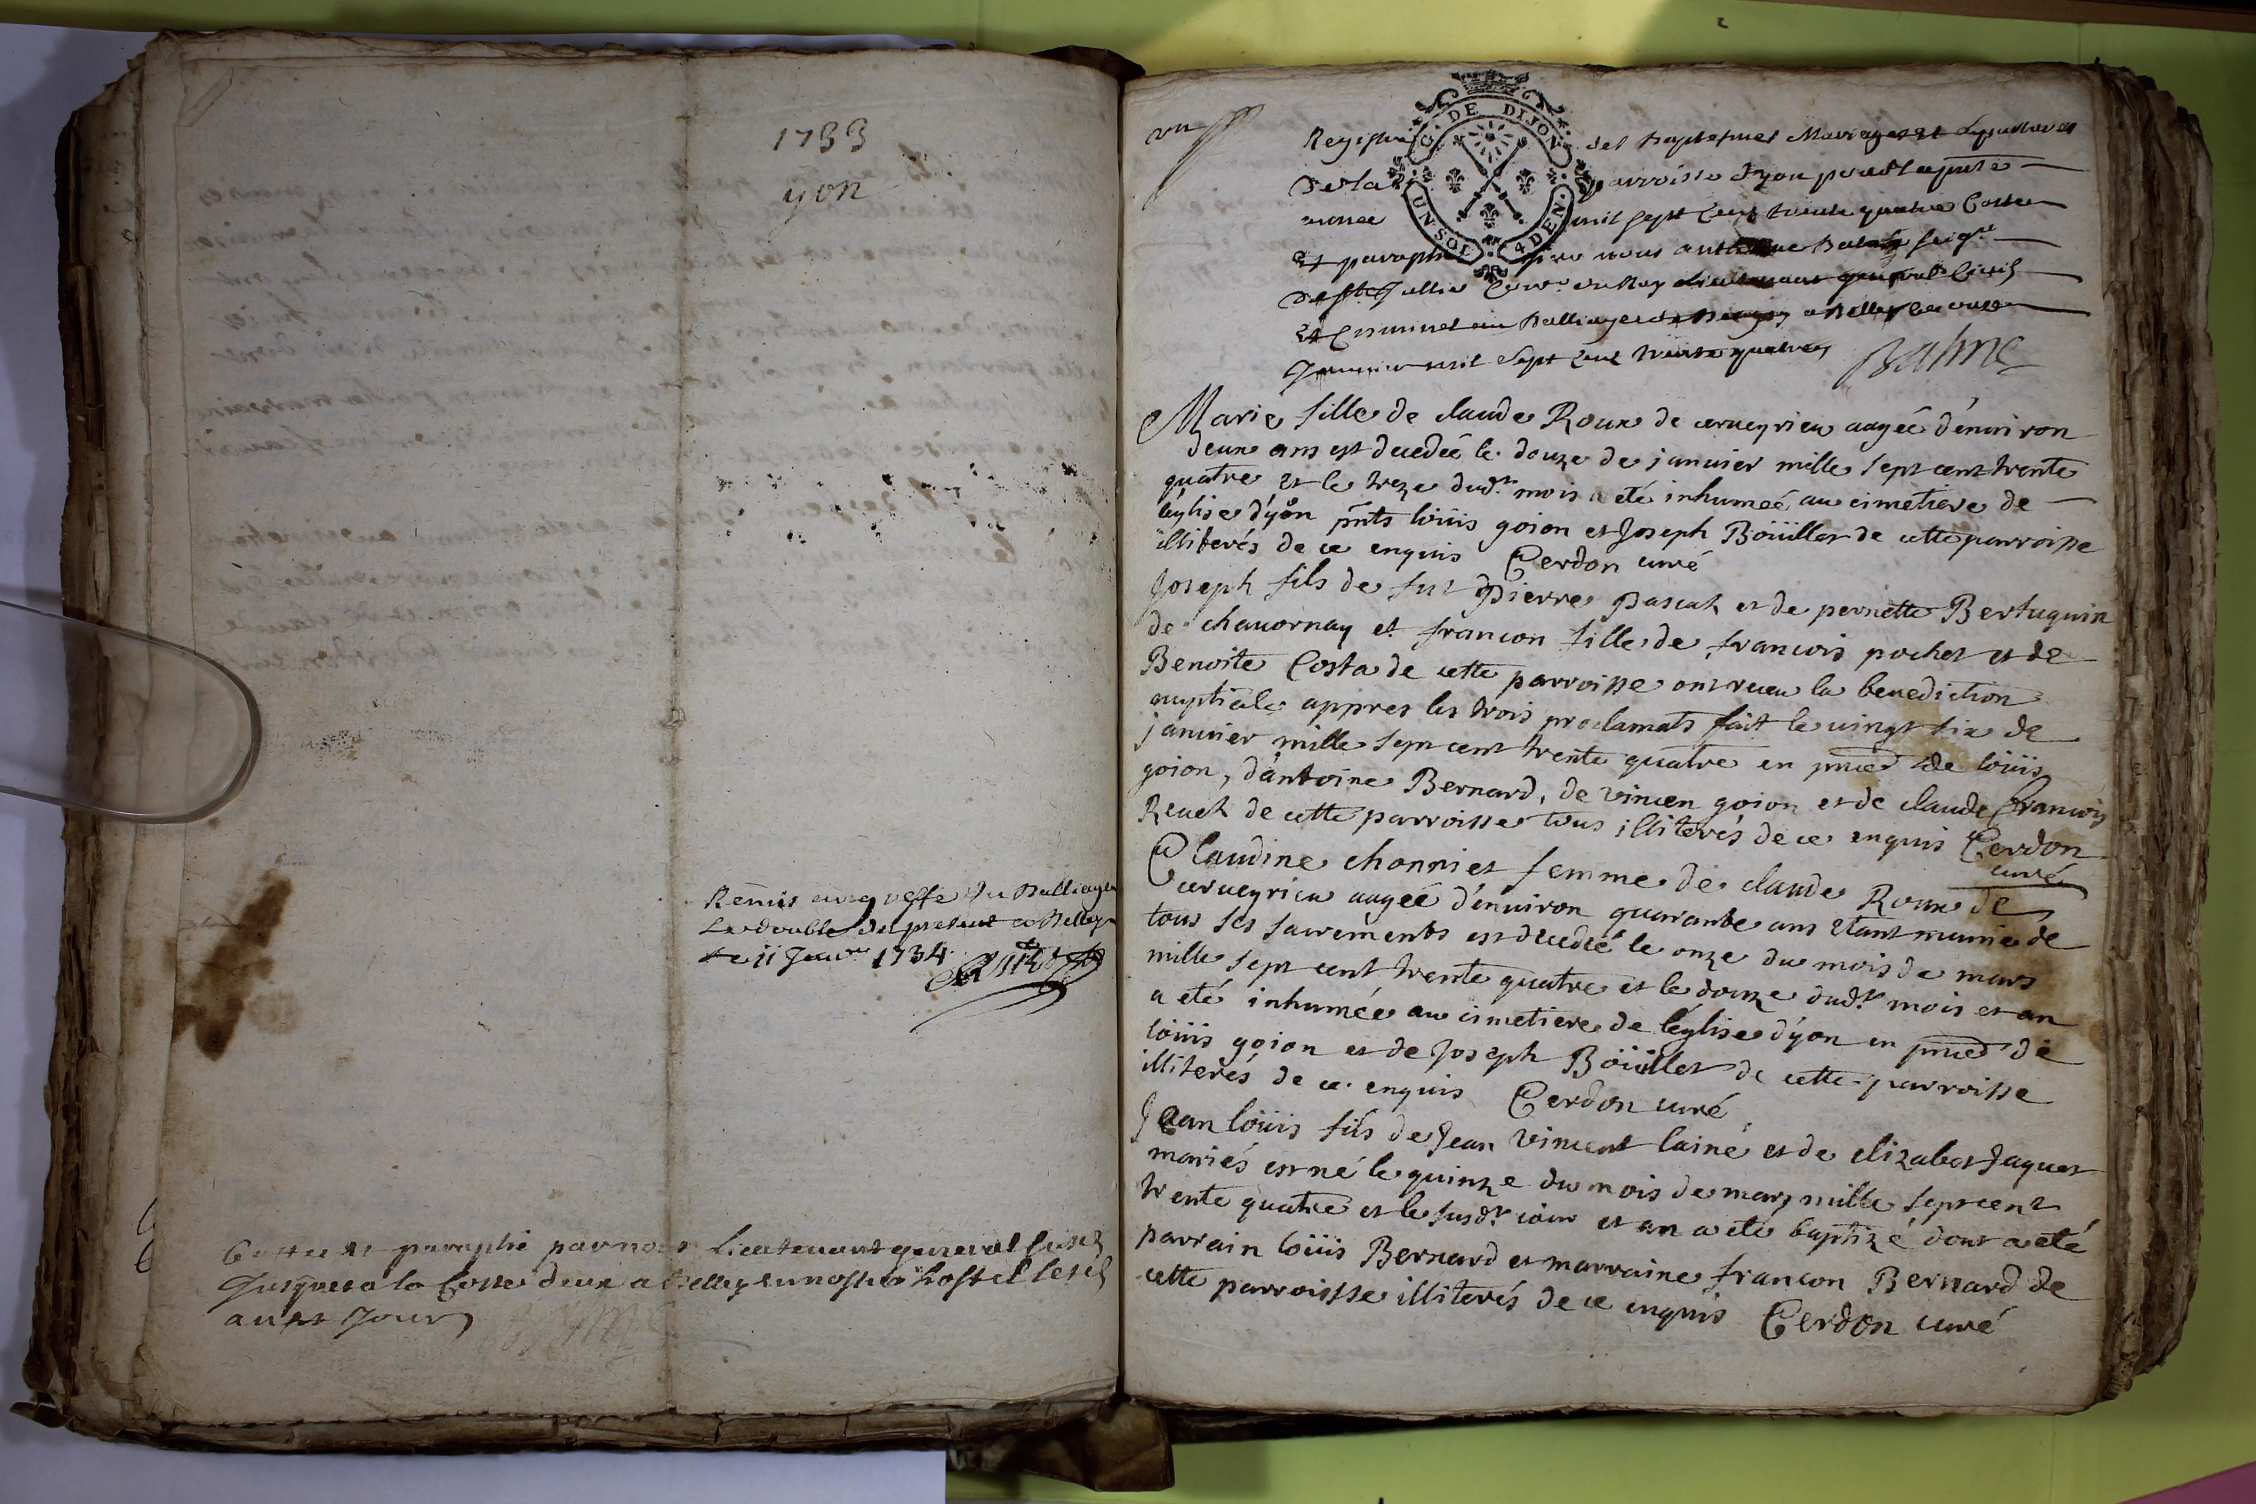 1733
yon
Remis au greffe du Balliage
Le double du present a Belley
Le 11 Janv.er 1734
Cotté et paraphé par nous Lieutenant general susd.
Jusques a la Cotte deux a Belley en nostre hostel lesd.
an et Jour
un
Registre des baptesmes Mariages et Sepultures
de la parroisse dyon pour La pnte
année mil sept cent trente quatre Cotté
Et paraphé par nous anthelme Seig.r
de Conr. du Roy Lieutenant general Civil
Et Criminel au Balliage de Bugey a Belley Le onze
Janvier mil Sept cent trente quatre Balme
G. DE DIJON
UN SOL 4 DEN.
Marie fille de claude Roux de cerveyrieu aagée d'environ
deux ans est decedée le douze de janvier mille sept cent trente
quatre et le treze dud.t mois a eté inhumée au cimetiere de
l'eglise d'yon pnts loüis goion et Joseph Boüillet de cette parroisse
illiterés de ce enquis Cerdon curé
Joseph fils de fut Pierre Pascat et de pernette Bertuquin
de chavornay et francon fille de francois pochet et de
Benoite Costa de cette parroisse ont receu la benediction
nuptiale appres les trois proclamats fait le vingt six de
janvier mille sept cent trente quatre en pnce de loüis
goion, d'antoine Bernard, de vincen goion et de claude francois
Revet de cette parroisse tous illiterés de ce enquis Cerdon
curé
Claudine chonniet femme de claude Roux de
cerveyrieu aagée d'environ quarante ans etant munie de
tous ses sacrements est decedée le onze du mois de mars
mille sept cent trente quatre et le douze dud.t mois et an
a eté inhumée au cimetiere de l'eglise d'yon en pnce de
loüis goion et de Joseph Boüillet de cette parroisse
illiterés de ce enquis Cerdon curé
Jean loüis fils de Jean vincent lainé et de elizabet Jaquet
mariés est né le quinze du mois de mars mille sept cent
trente quatre et le susd.t jour et an a eté baptizé dont a eté
parrain loüis Bernard et marraine francon Bernard de
cette parroisse illiterés de ce enquis Cerdon curé